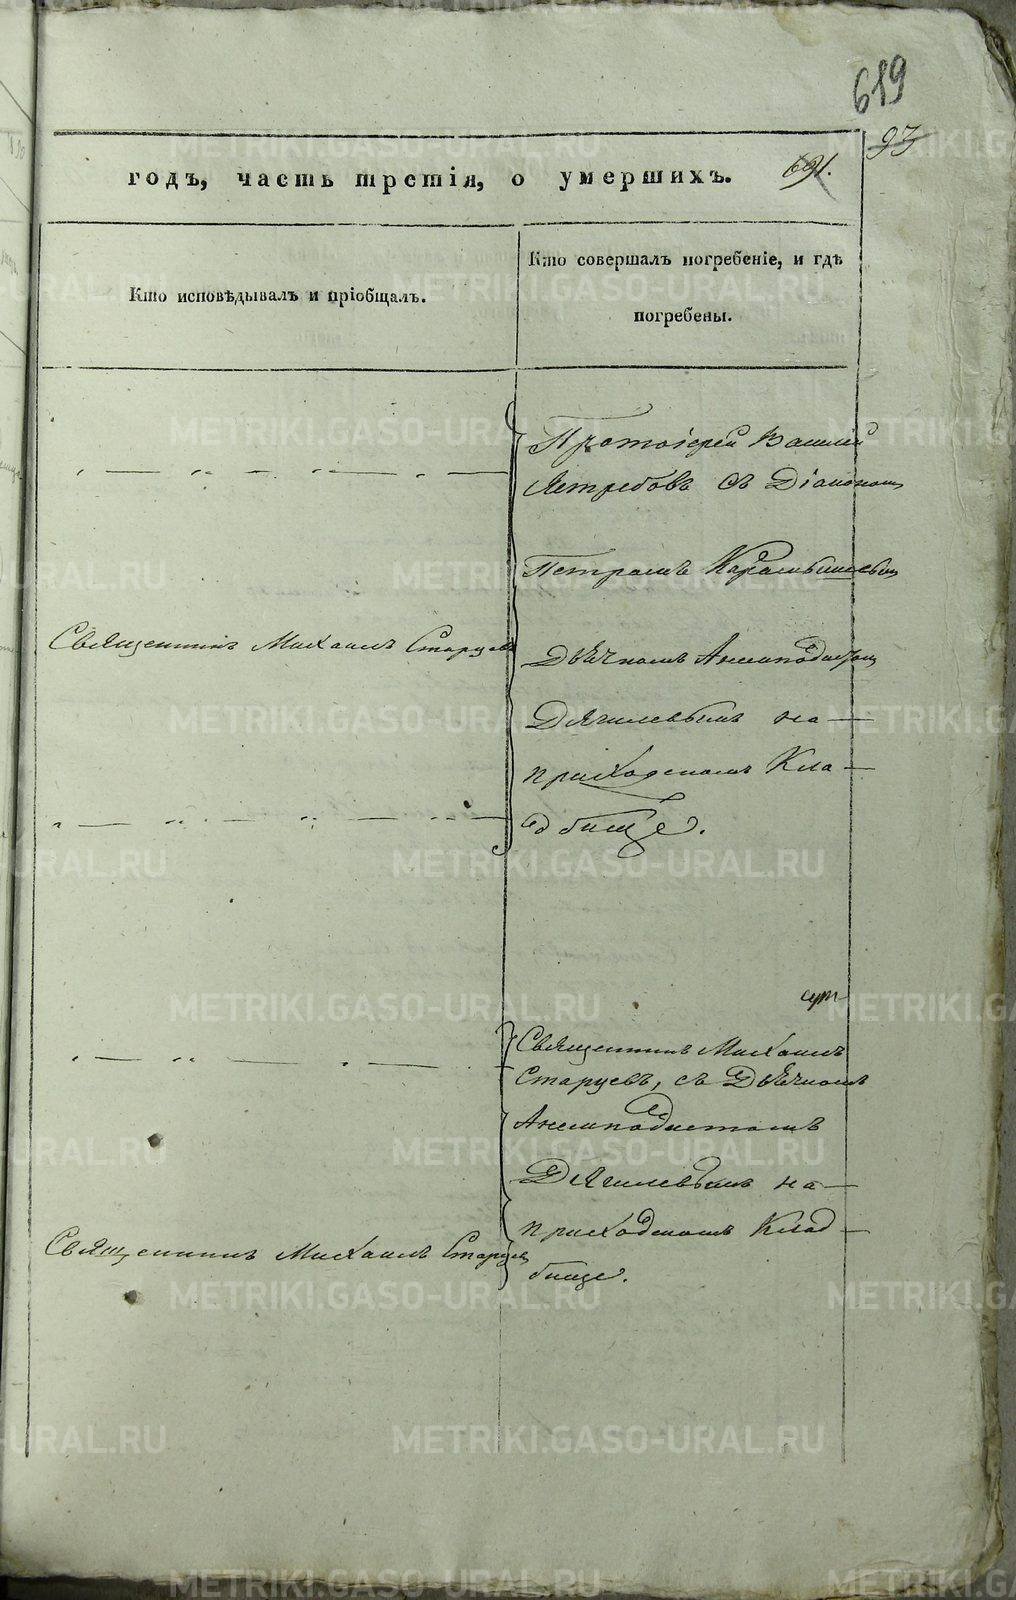 619
93
годъ, часть третія, о умершихъ. 691.
Кто исповѣдывалъ и пріобщалъ.
Кто совершалъ погребеніе, и гдѣ
погребены.
Протоіерей Василій
Ястребовъ съ Діакономъ
Петромъ Карамышевымъ
Священникъ Михаилъ Старцевъ
Дьячкомъ Анемподистомъ
Дягилевымъ на
приходскомъ Кла-
дбище.
Священникъ Михаилъ
Старцевъ, съ Дьячкомъ
Анемподистомъ
Дягилевымъ на
приходскомъ Клад-
бище.
Священникъ Михаилъ Старцевъ
METRIKI.GASO-URAL.RU